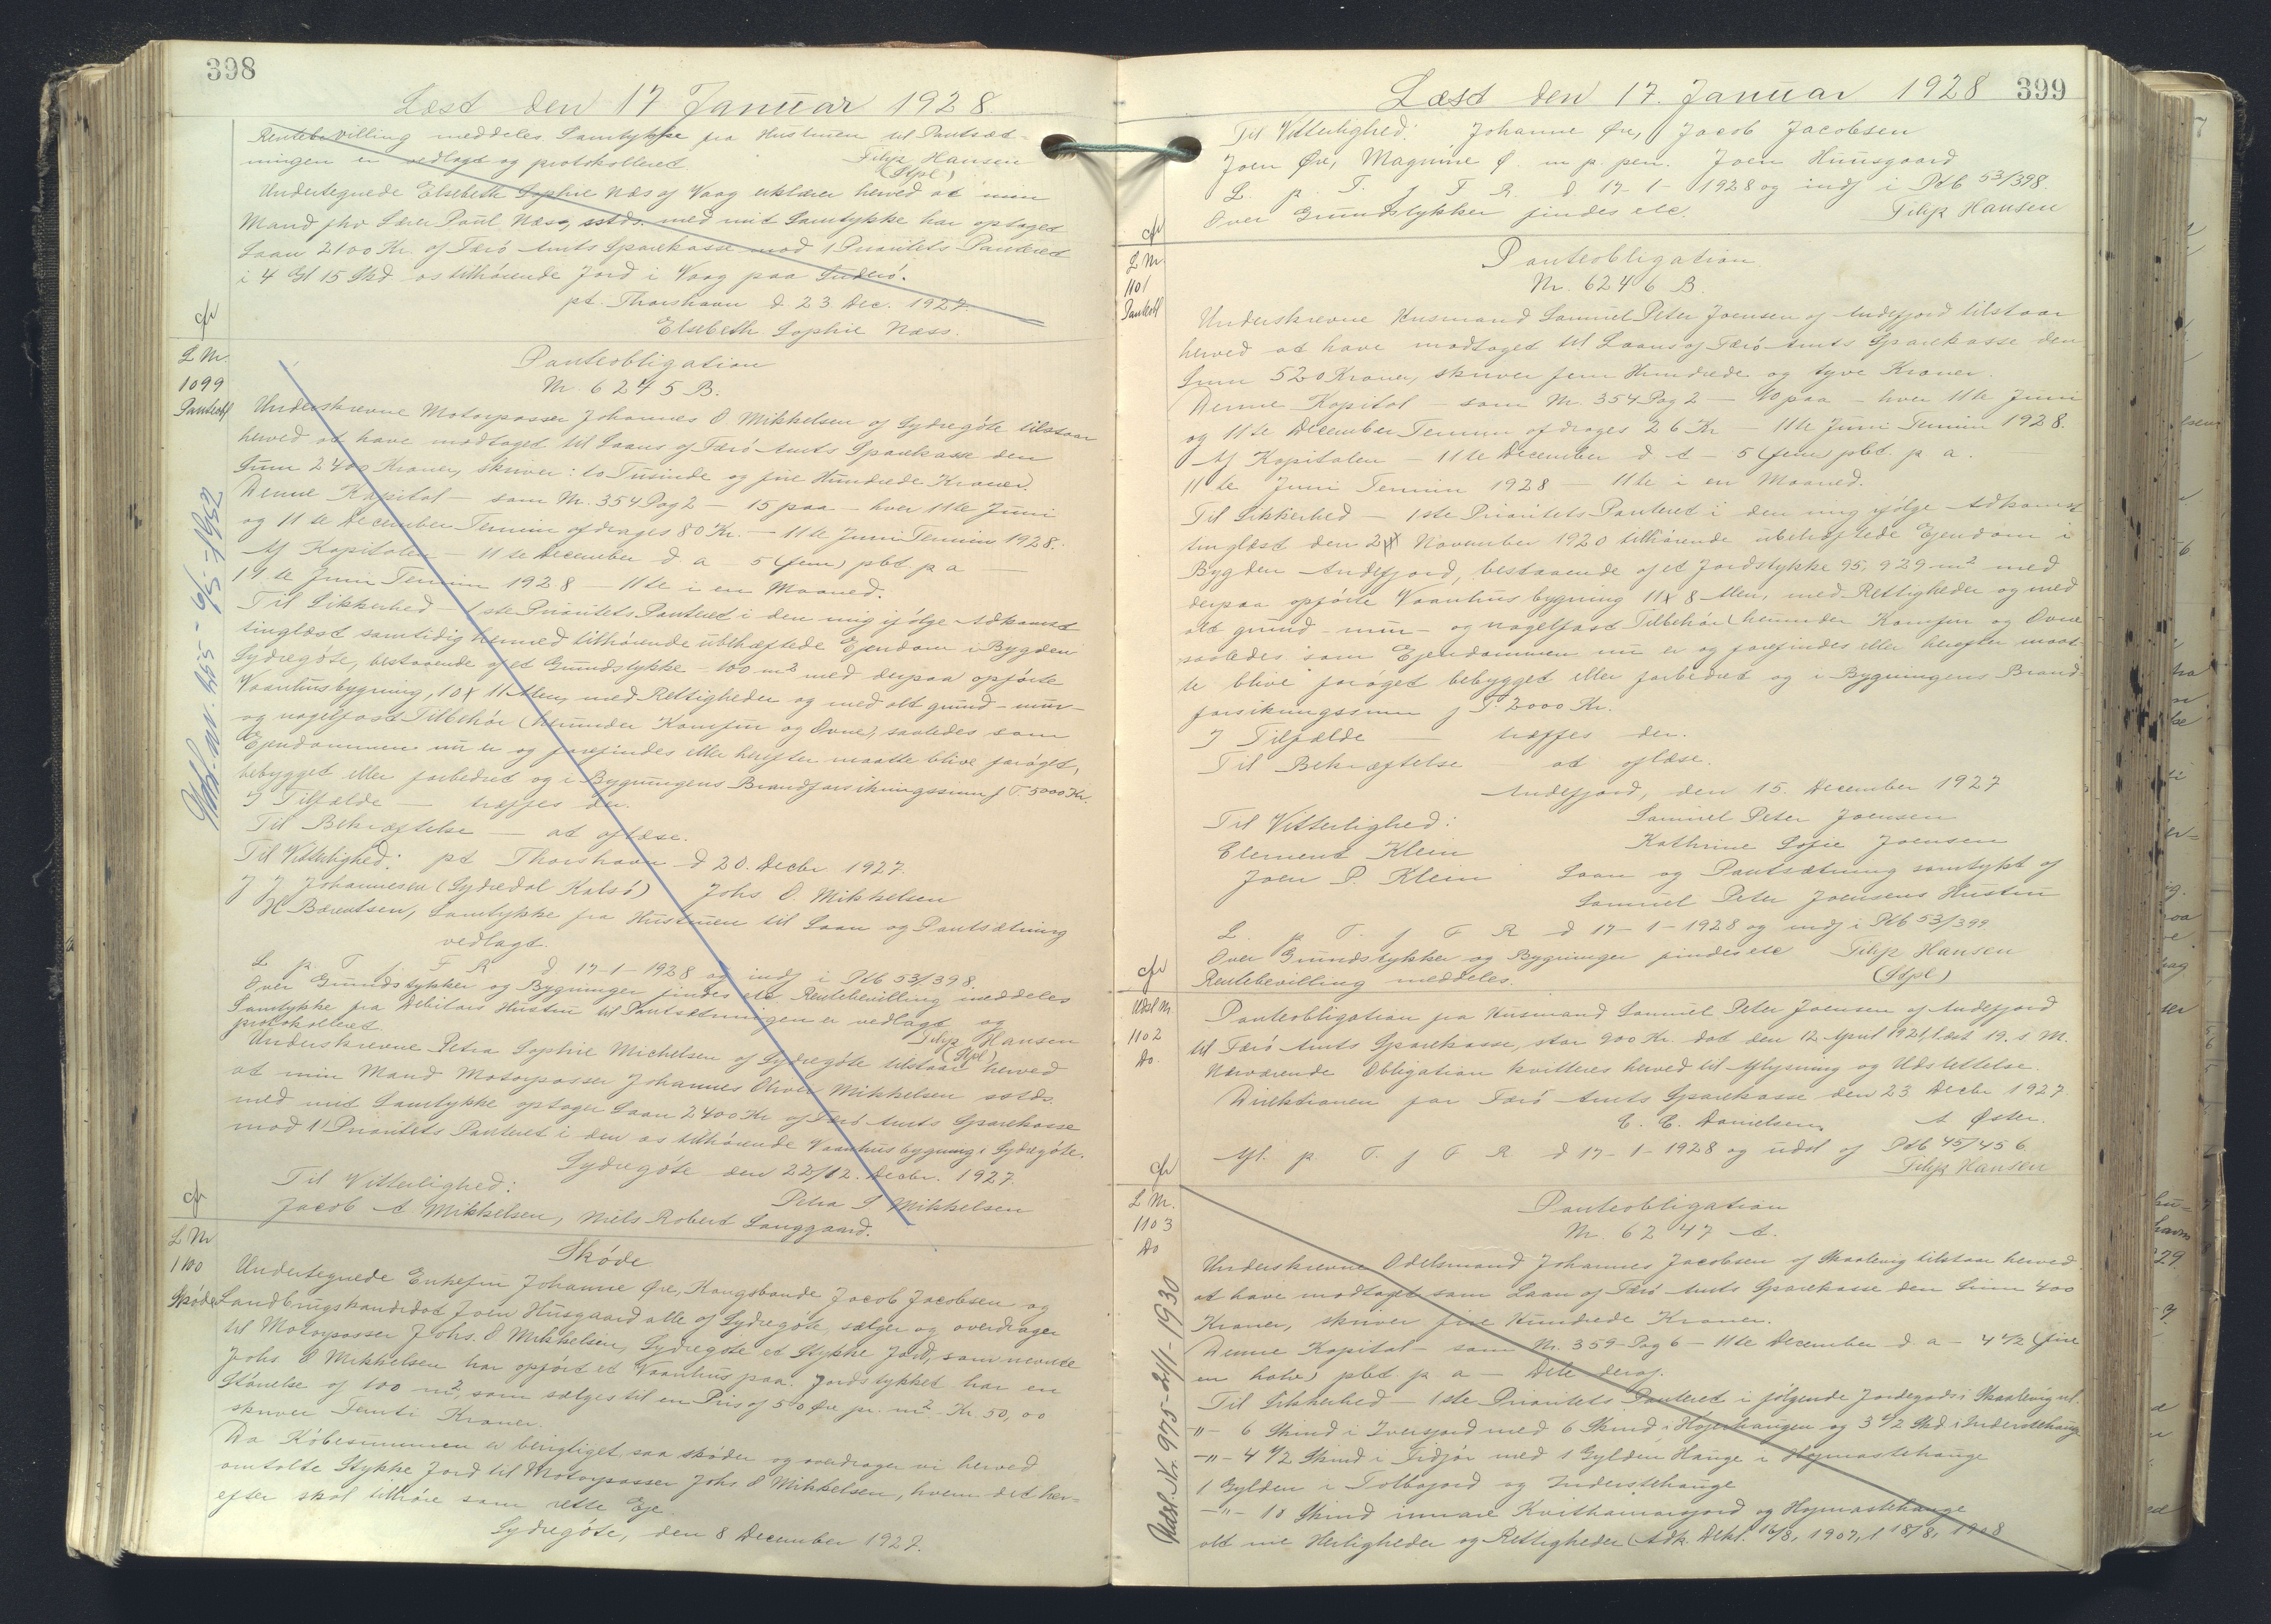 398
Læst den 17 Januar 1928.
Rentebevilling meddeles Samtykke fra Hustruen til Pantsæt-
ningen er vedlagt og protokolleret. Filip Hansen
(Stpl)
Undertegnede Elsebeth Sophie Næs af Vaag erklærer herved at min
Mand fhv Lærer Poul Næs, sstds. med mit Samtykke har optaget
Laan 2100 Kr. af Færö Amts Sparekasse mod 1 Prioritets Panteret
i 4 Gl 15 Skd os tilhörende Jord i Vaag paa Suderö.
pt. Thorshavn d. 23 Dec. 1927.
Elsebeth Sophie Næss.
cfr
L Nr.
1099
Panteobl
Udsl. nr. 455 - 5/5 - 1952
Panteobligation
Nr. 6245 B.
Underskrevne Motorpasser Johannes O Mikkelsen af Sydregöte tilstaar
herved at have modtaget til Laans af Færö Amts Sparekasse den
Sum 2400 Kroner, skriver: to Tusinde og fire Hundrede Kroner.
Denne Kapital - som Nr. 354 Pag 2 - 15 paa - hver 11te Juni
og 11te December Termin afdrages 80 Kr. - 11te Juni Termin 1928.
Af Kapitalen - 11te December d. a - 5 (fem) pct. p a -
11te Juni Termin 1928 - 11te i en Maaned.
Til Sikkerhed - 1ste Prioritets Panteret i den mig ifölge Adkomst
tinglæst samtidig hermed tilhörende ubehæftede Ejendom i Bygden
Sydregöte, bestaaende af et Grundstykke - 100 m² med derpaa opförte
Vaanhusbygning, 10 x 11 Alen, med Rettigheder og med alt grund- mur-
og nagelfast Tilbehör (herunder Komfur og Ovne), saaledes som
Ejendommen nu er og forefindes eller herefter maatte blive foröget,
bebygget eller forbedret og i Bygningens Brandforsikringssum f. T. 5000 Kr.
I Tilfælde - træffes den.
Til Bekræftelse - at aflæse.
Til Vitterlighed: pt Thorshavn d 20. Decbr 1927.
J J Johannesen (Sydredal Kalsö) Johs O. Mikkelsen
H Bærentsen, Samtykke fra Hustruen til Laan og Pantsætning
vedlagt.
L p T f F R d 17-1-1928 og indf i Ptb 53/398.
Over Grundstykker og Bygninger findes etc Rentebevilling meddeles
Samtykke fra Debitors Hustru til Pantsætningen er vedlagt og
protokolleret. Filip Hansen
(Stpl)
Underskrevne Petra Sophie Michelsen af Sydregöte tilstaar herved
at min Mand Motorpasser Johannes Oliver Mikkelsen sstds.
med mit Samtykke optager Laan 2400 Kr af Færö Amts Sparekasse
mod 1 Prioritets Panteret i den os tilhörende Vaanhusbygning i Sydregöte.
Sydregöte den 22/12. Decbr. 1927.
Til Vitterlighed: Petra S Mikkelsen
Jacob A Mikkelsen, Niels Robert Langgaard.
cfr
L Nr
1100
Sköde
Sköde
Undertegnede Enkefru Johanne Øre, Kongsbonde Jacob Jacobsen og
Landbrugskandidat Joen Husgaard alle af Sydregöte, sælger og overdrager
til Motorpasser Johs. O Mikkelsen, Sydregöte et Stykke Jord, som nævnte
Johs O Mikkelsen har opfört et Vaanhus paa. Jordstykket har en
Störrelse af 100 m², som sælges til en Pris af 50 Øre pr. m² - Kr 50,00
skriver Femti Kroner.
Da Köbesummen er berigtiget, saa sköder og overdrager vi herved
omtalte Stykke Jord til Motorpasser Johs O Mikkelsen, hvem det her-
efter skal tilhöre som rette Eje.
Sydregöte, den 8 December 1927.
Læst den 17. Januar 1928 399
Til Vitterlighed: Johanne Øre, Jacob Jacobsen
Joen Øre, Magnine Ø. m. p. pen. Joen Huusgaard
L. p. T. f F R. d 17-1-1928 og indf i Ptb 53/398.
Over Grundstykker findes etc. Filip Hansen
cfr
L Nr
1101
Panteobl
Panteobligation
Nr. 6246 B.
Underskrevne Husmand Samuel Peter Joensen af Andefjord tilstaar
herved at have modtaget til Laans af Færö Amts Sparekasse den
Sum 520 Kroner, skriver fem Hundrede og tyve Kroner.
Denne Kapital - som Nr. 354 Pag 2 - 10 paa - hver 11te Juni
og 11te December Termin afdrages 26 Kr - 11te Juni Termin 1928.
Af Kapitalen - 11te December d. A - 5 (fem) pct. p a.
11te Juni Termin 1928 - 11te i en Maaned.
Til Sikkerhed - 1ste Prioritets Panteret i den mig ifölge Adkomst
tinglæst den November 1920 tilhörende ubehæftede Ejendom i
Bygden Andefjord, bestaaende af et Jordstykke 95,929 m² med
derpaa opförte Vaanhusbygning 11 x 8 Alen, med Rettigheder og med
alt grund- mur- og nagelfast Tilbehör (herunder Komfur og Ovne
saaledes som Ejendommen nu er og forefindes eller herefter maat-
te blive foröget bebygget eller forbedret og i Bygningens Brand-
forsikringssum f T. 2000 Kr.
I Tilfælde - træffes den.
Til Bekræftelse - at aflæse.
Andefjord, den 15. December 1927
Til Vitterlighed: Samuel Peter Joensen
Clement Klein Kathrine Sofie Joensen
Joen P. Klein Laan og Pantsætning samtykt af
Samuel Peter Joensens Hustru
L. p. T. f F R d 17-1-1928 og indf i Ptb 53/399
Over Grundstykker og Bygninger findes etc Filip Hansen
Rentebevilling meddeles. (Stpl)
cfr
Udsl Nr.
1102
Do.
Panteobligation fra Husmand Samuel Peter Joensen af Andefjord
til Færö Amts Sparekasse, stor 900 Kr. dat den 12 April 1921, læst 19. s. M.
Nærværende Obligation kvitteres herved til Aflysning og Udslettelse.
Direktionen for Færö Amts Sparekasse den 23 Decbr 1927
C. C. Danielsen, A Øster.
Afl. p. T. f F R. d 17-1-1928 og udsl af Ptb 45/456
Filip Hansen
cfr
L Nr.
1103
Do
Udsl. Nr. 975 - 24/1 - 1930
Panteobligation
Nr 6247 A.
Underskrevne Odelsmand Johannes Jacobsen af Skaalevig tilstaar herved
at have modtaget som Laan af Færö Amts Sparekasse den Sum 400
Kroner, skriver fire Hundrede Kroner.
Denne Kapital - som Nr. 359 - Pag 6 - 11te December d a - 4 1/2 (fire
en halv) pct. p a - Dele deraf.
Til Sikkerhed - 1ste Prioritets Panteret i fölgende Jordegods i Skaalevig nl.
-"- 6 Skind i Iversjord med 6 Skind i Højerhaugen og 3 1/2 Skd i Inderstehauge
-"- 4 1/2 Skind i Fidjör med 1 Gylden Hauge i Højmastehauge
1 Gylden i Tolbojord og Inderstehauge
-"- 10 Skind innare Kvithamarsjord og Hojmastehauge
alt me Herligheder og Rettigheder (Adk. Dekl. 16/8, 1907, l 18/8, 1908